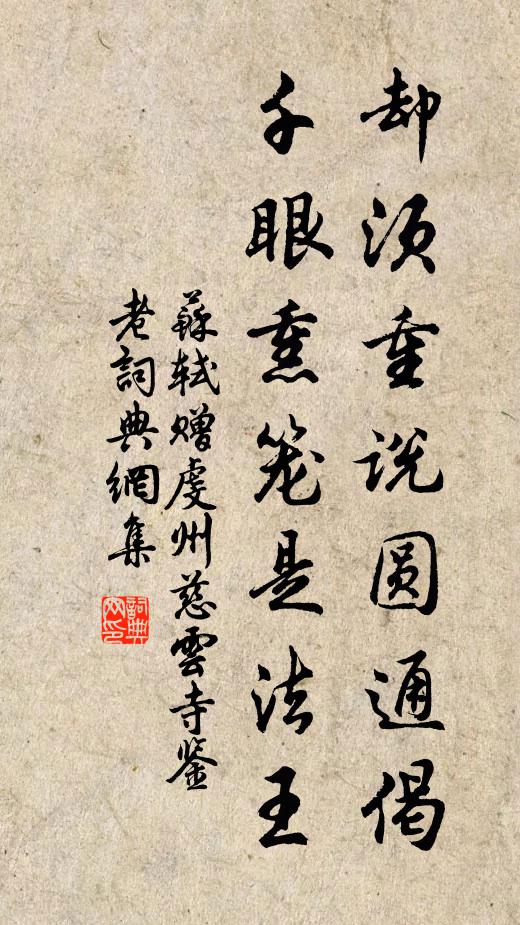 却须重说圆通偈
千眼熏笼是法王
蘇軾贈虔州慈雲寺鉴
老詞典網集
詞典網印